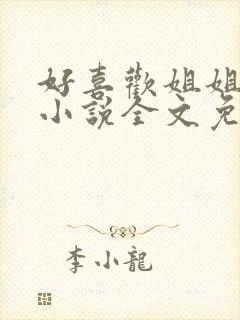 好喜歡姐姐
小說全文免
李小龍